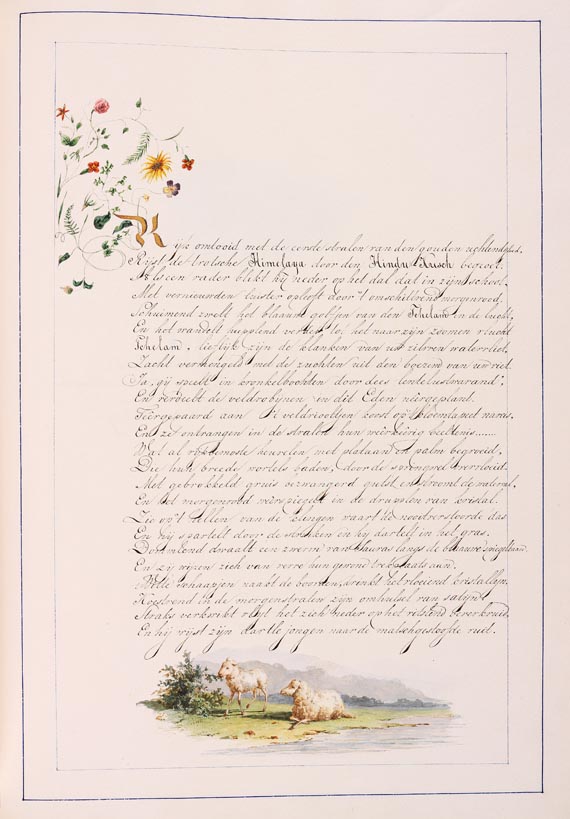 Rijk omlooid met de eerste stralen van den gouden
Rijst de trotsche Himelaya door den Hindu Kusch begroet.
Als een vader blikt hij neder op het dal dat in zijn school.
Met vernieuwden luister oplooft door 't morgenrood,
Schuimend zwelt het blaauwe golfjen van den Tchelam in de lucht,
En het wandelt huppelend verder, tot het naar zijn zoomen vlucht
Tchelam, lieflijk zijn de klanken van uw zilvren watervliet.
Zacht vermengeld met de zuchten uit den boezem van uw riet.
Ja, gij speelt in kronkelbochten door dees lentelustwarand',
En verdeelt de veldrobijnen in dit Eden neêrgeplant.
Teêrgepaard aan 't veldviooltjen koost op 't bloemtapeet narcis.
En ze ontvangen in de stralen hun weêrkeerig beeltenis......
Wat al heuvelen, met plataan en palm begroeid,
Die hun breede wortels baden, door de sprongwel overvloeid.
Met gebrokkeld gruis bezwangerd gulst en stroomt de waterval.
En het morgenrood weêrspiegelt in de druppelen van kristal.
Zie op 't tillen van de waart de das
En hij spartelt door de struiken en hij dartelt in het gras.
Dommlend dwaalt een zwerm van langs de blaauwe
En zij wijzen zich van verre hun gewone trekplaats aan.
Welle schaapjen naakt de boomen, drenkt het vloeiend kristallijn,
Koestrend in de morgenstralen zijn omhulsel van satijn.
Straks verkwikt vlijt het zich neder op het beverkruid,
En hij wijst zijn dartle jongen naar de malschgestoofde ruit.